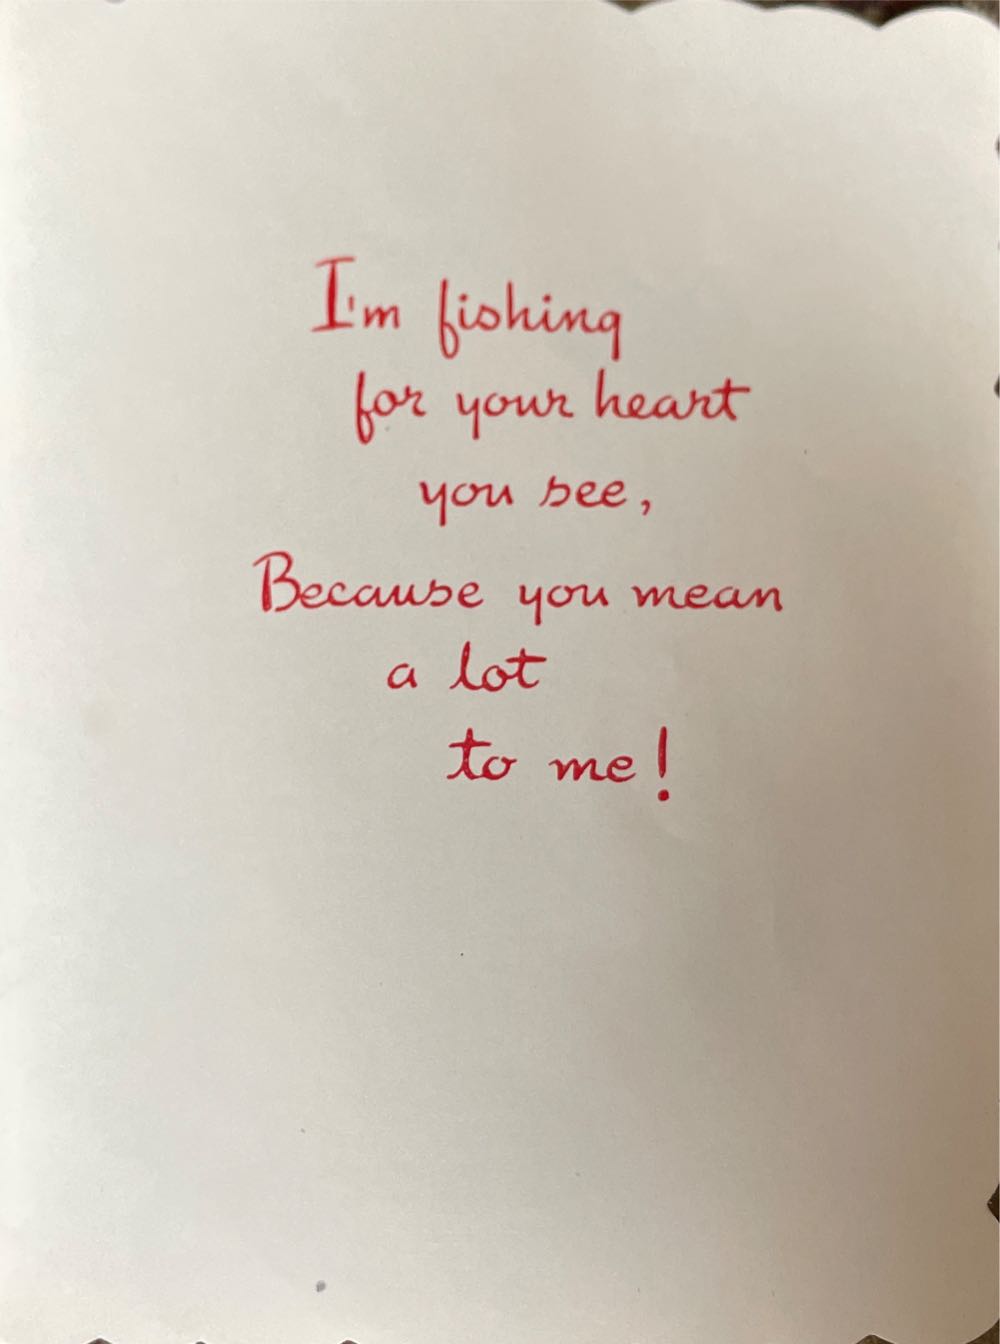 I'm fishing
for your heart
you see,
Because you mean
a lot
to me!